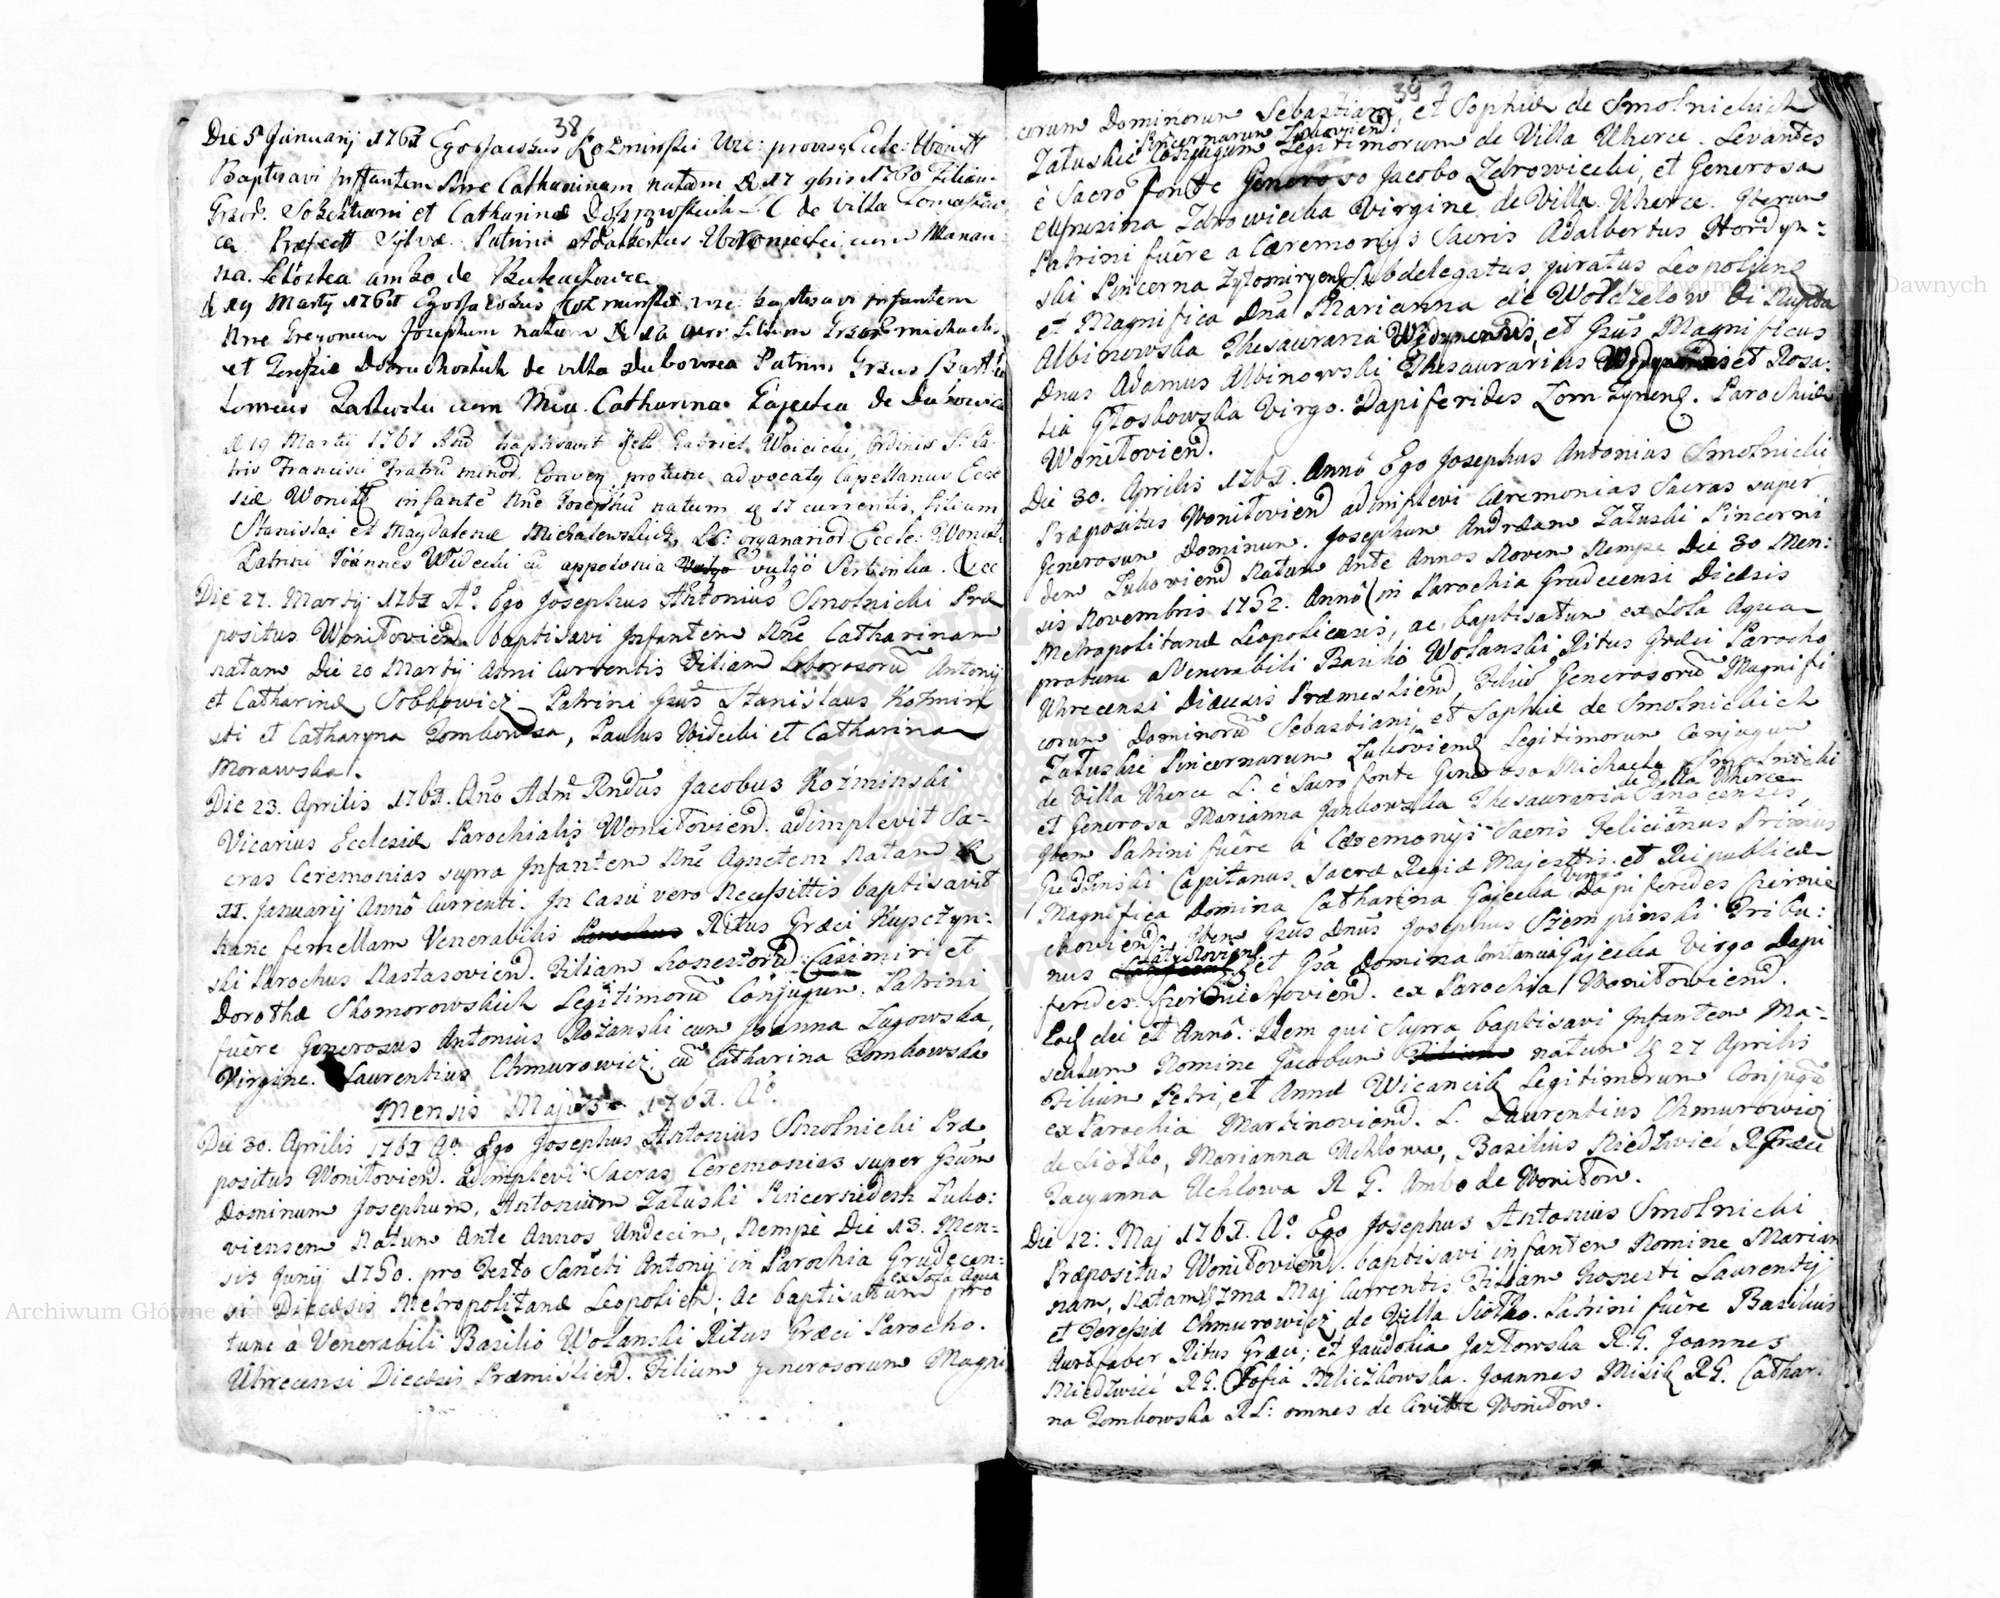 38
Die 5 Januarij 1761 Ego Jacobus Kozminski Vic: Eccle: Wonitt
Baptisavi Infantem Nne Catharinam natam d. 17 9bris 1760 Filiam
Sebastiani et Catharinæ LC de Villa
Præfecti Sylvæ. Patrini Adalbertus cum
na. ambo de
d 19 Martij 1761 Ego Jacobus Kozminski vic baptisavi infantem
Nne Gregorium Josephum natum Filium Michaelis
et Teresiæ de villa Dubowica Patrini
lomeus cum Catharina de Dubowica
d 19 Martij 1761 baptisavit Gabriel Woicicki, Ordinis S. Pa-
tris Francisci Fratrū minor. Conven. protunc advocatg Capellanus Eccle
siæ Wonitt infantē Nne Josephū natum 17 currentis, filium
Stanislai et Magdalenæ Michalewskich, organarior Eccle: Wonitt
Patrini Joannes Widecki cū appolonia vulgo vulgo
Die 27. Martij 1761 Aº. Ego Josephus Antonius Smolnicki Præ
positus Wonitoviens. baptisavi Infantem Nne Catharinam
natam Die 20 Martij Anni Currentis Filiam Laborosorū Antonij
et Catharinæ Sobkowicz Patrini Gsūs Stanislaus Kozmin
ski et Catharyna Zombowska, Paulus Widecki et Catharina
Morawska.
Die 23. Aprilis 1761. Año Admʳ Rndūs Jacobus Kozminski
Vicarius Ecclesiæ Parochialis Wonitoviens. adimplevit Sa-
cras Ceremonias supra Infantem Nne Agnetem Natam
II. Januarij Anno Currenti. In Casu vero Necessittis baptisavit
hanc femellam Venerabilis Parochus Ritus Græci Kupczyn-
ski Parochus Nastasoviens. Filiam Honestorū Casimiri et
Dorothæ Skomorowskich Legitimorū Conjugum. Patrini
fuêre Generosus Antonius Rozanski cum Joanna Lugowska,
Virgine. Laurentius Chmurowicz. cū Catharina Zombowska
Mensis Majus 1761. Aº.
Die 30. Aprilis 1761 Aº. Ego Josephus Antonius Smolnicki Præ
positus Wonitoviens. adimplevi Sacras Ceremonias super Gsūm
Dominum Josephum, Antonium Załuski Pincernidem Zuko:
viensem Natum Ante Annos Undecim, Nempè Die 13. Men-
sis Junij 1750. pro Festo Sancti Antonij in Parochia Grudecen-
ex Sola Aqua
sis Diæcesis Metropolitanæ Leopolien; ac baptisatum pro
tunc a Venerabili Basilio Wolanski Ritus Græci Parocho.
Uhrecensi Diecesis Præmislien. Filium Generosorum Magni
39
corum Dominorum Sebastiani, et Sophiæ de Smolnickich
Pincernarum Zukovien
Załuskie Conjugum Legitimorum de Villa Uherce. Levantes
è Sacro fonte Generoso Jacobo Zdrowiecki, et Generosa
Eufrosina Zdrowiecka Virgine de Villa Uherce. Iterum
Patrini fuêre a Cæremonijs Sacris Adalbertus Hordyn-
ski Pincerna Zytomiryens Subdelegatus juratus Leopoliens
et Magnifica Dña Marianna de Wołczelow
Albinowska Thesauraria et Gsūs Magnificus
Dnus Adamus Albinowski Thesaurarius et Rosa-
lia Głoskowska Virgo. Dapiferides Parochiæ
Wonitovien.
Die 30. Aprilis 1761. Annô Ego Josephus Antonius Smolnicki
Præpositus Wonitovien adimplevi Cæremonias Sacras super
Generosum Dominum. Josephum Andræam Załuski Pincerni
dem Zukovien Natum Ante Annos Novem Nempe Die 30 Men:
sis Novembris 1752. Annô in Parochia Grudecensi Diæcesis
Metropolitanæ Leopoliensis, ac baptisatum ex Sola Aqua
protunc a Venerabili Basilio Wolanski Ritus Græci Parocho
Uhrecensi Diæcesis Præmeslien, Filiū Generosorū Magnifi
corum Dominorū Sebastiani, et Sophiæ de Smolnickich
Załuskie Pincernarum Zukovien Legitimorum Conjugum
de Villa Uherce L. è Sacro fonte Generoso Michaele Smolnicki
de Villa Uherce
et Generosa Marianna Jankowska Thesauraria Sanocensis,
Item Patrini fuêre à Cæremonijs Sacris Felicianus Primus
Giedzinski Capitanus Sacræ Regiæ Majesttis. et Reipublicæ
Virgo
Magnifica Domina Catharina Gajecka Dapiferides Czernie
chovien Item Gsūs Dnūs Josephus Stempinski Tribu:
nus et Gsā Domina Constancia Gajecka Virgo Dapi
ferides Czerniechovien. ex Parochia Wonitovien.
Eod dei et Annô. Idem qui Supra baptisavi Infantem Ma-
sculum Nomine Jacobum Filium natum 27 Aprilis
Filium Petri, et Annæ Legitimorum Conjugū
ex Parochia Martinovien. L. Laurentius Chmurowicz
de Siołko, Marianna Uchłowa, Basilius Niedzwieć R Græci
Uchlowa R G. Ambo de Wonitow.
Die 12: Maj 1761. Aº. Ego Josephus Antonius Smolnicki
Præpositus Wonitovien. baptisavi infantem Nomine Marian
nam, Natam Maj Currentis Filiam Honesti Laurentij
et Teresiæ Chmurowicz de Villa Siołko. Patrini fuêre Basilius
Aurifaber Ritus Græci; et Jaudokia R. G. Joannes
Niedzwieć R G. Zofia Joannes Misik R G. Cathari
na Zombowska R L: omnes de Civitte Wonitow.
Archiwum Główne Akt Dawnych
Archiwum Główne Akt Dawnych